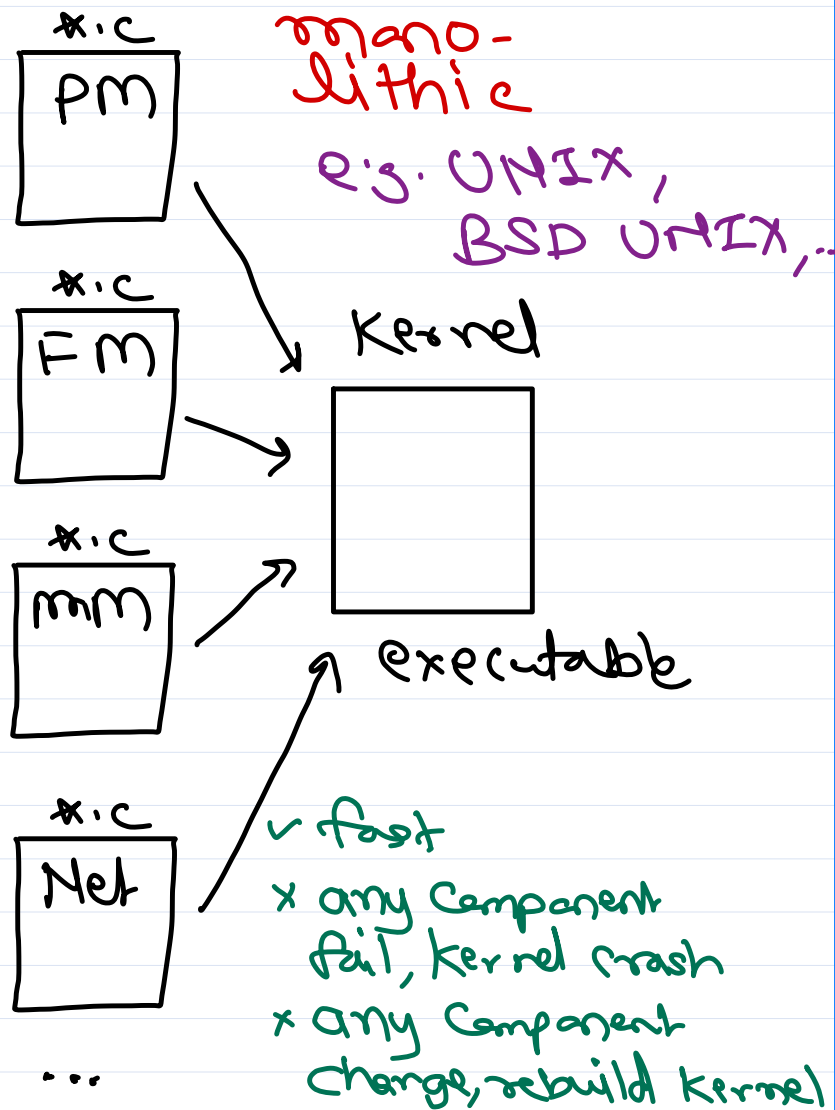 *.c
PM
mono-
lithic
e.g. UNIX,
BSD UNIX,...
*.c
FM
Kernel
*.c
mM
executable
*.c
Net
...
✓ fast
x any component
fail, kernel crash
x any component
change, rebuild kernel